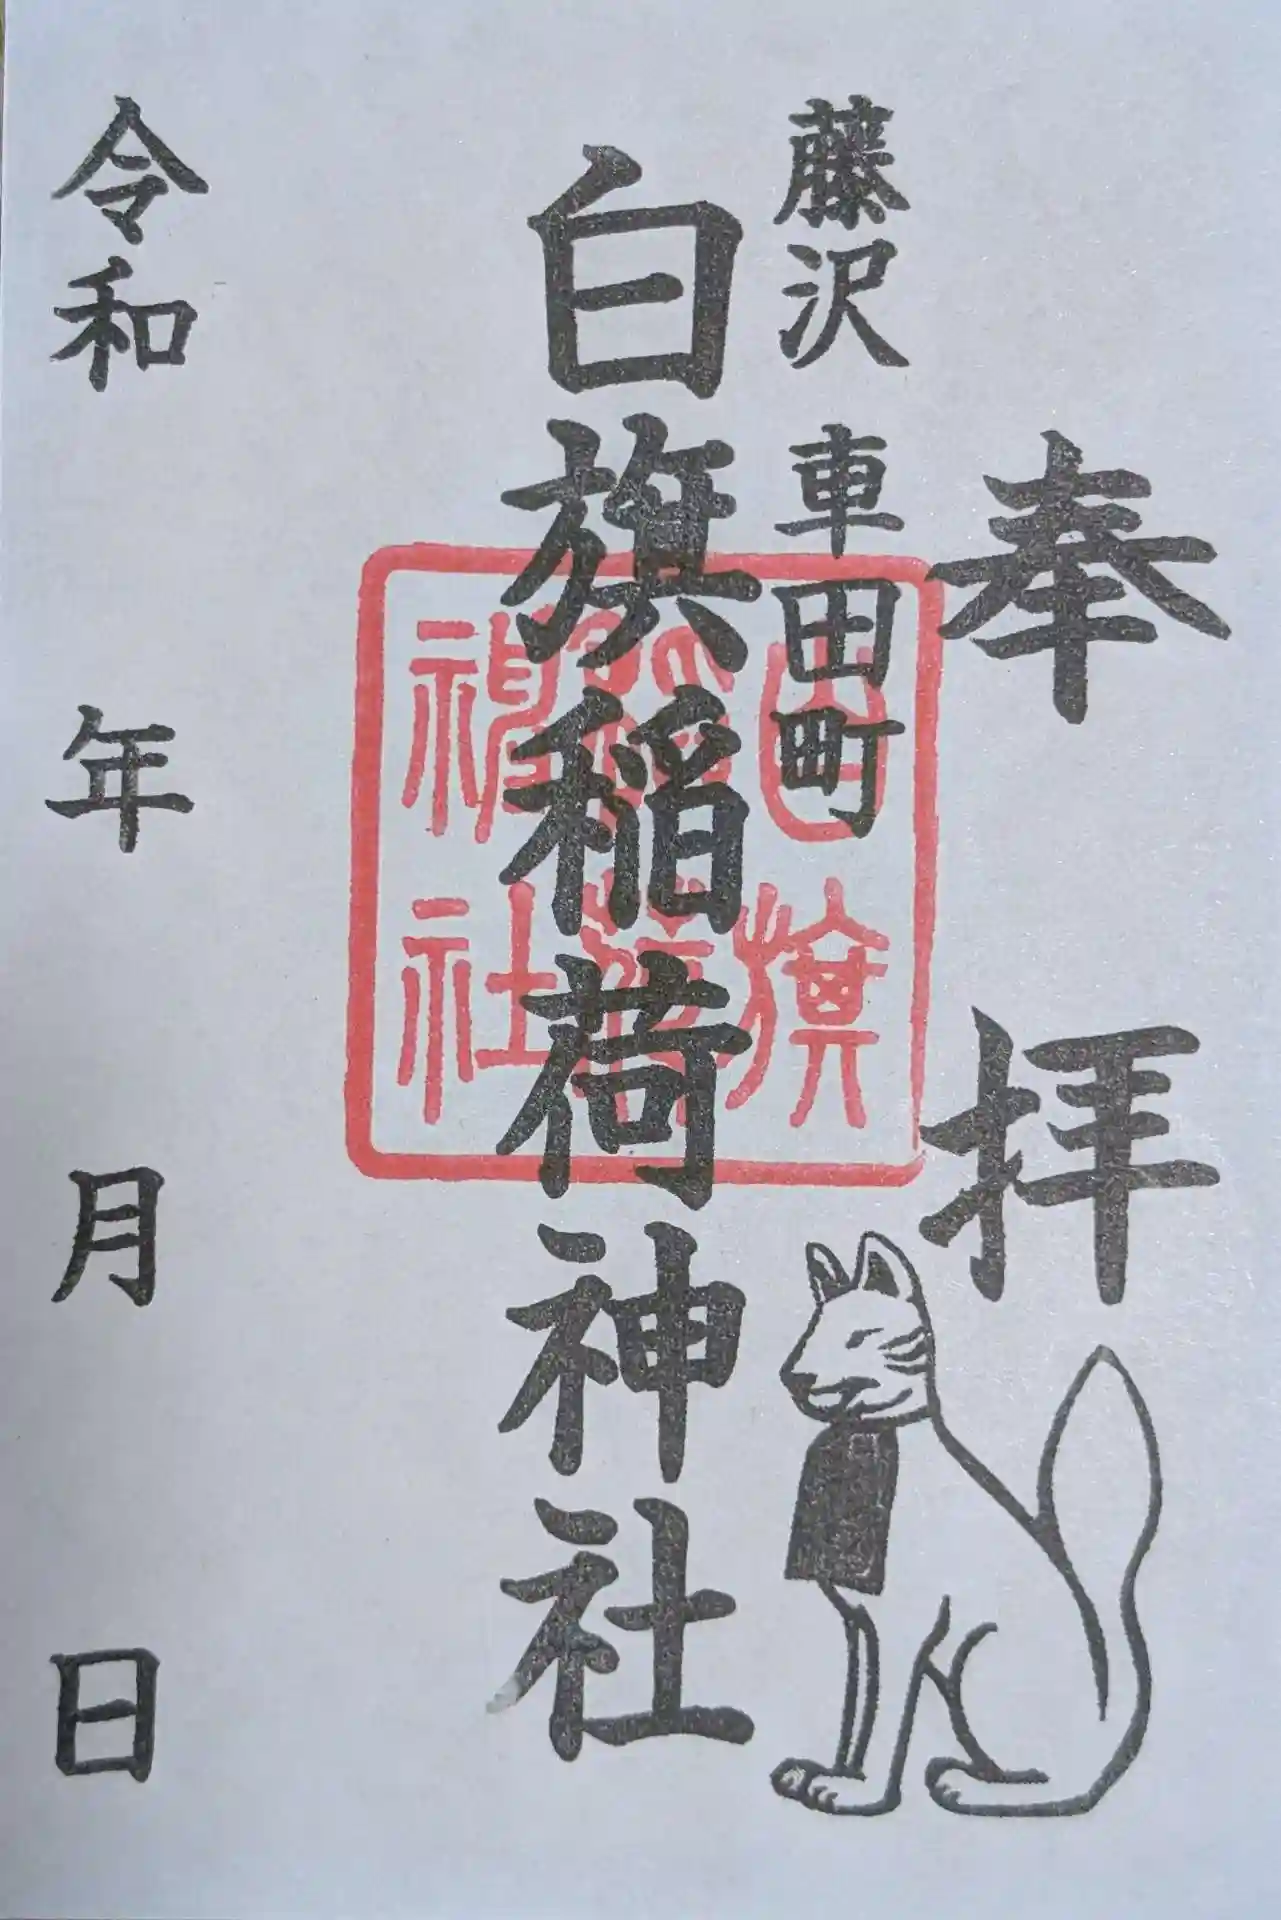 奉拝
藤沢 車田町
白旗稲荷神社
令和 年 月 日
白旗
稲荷
神社